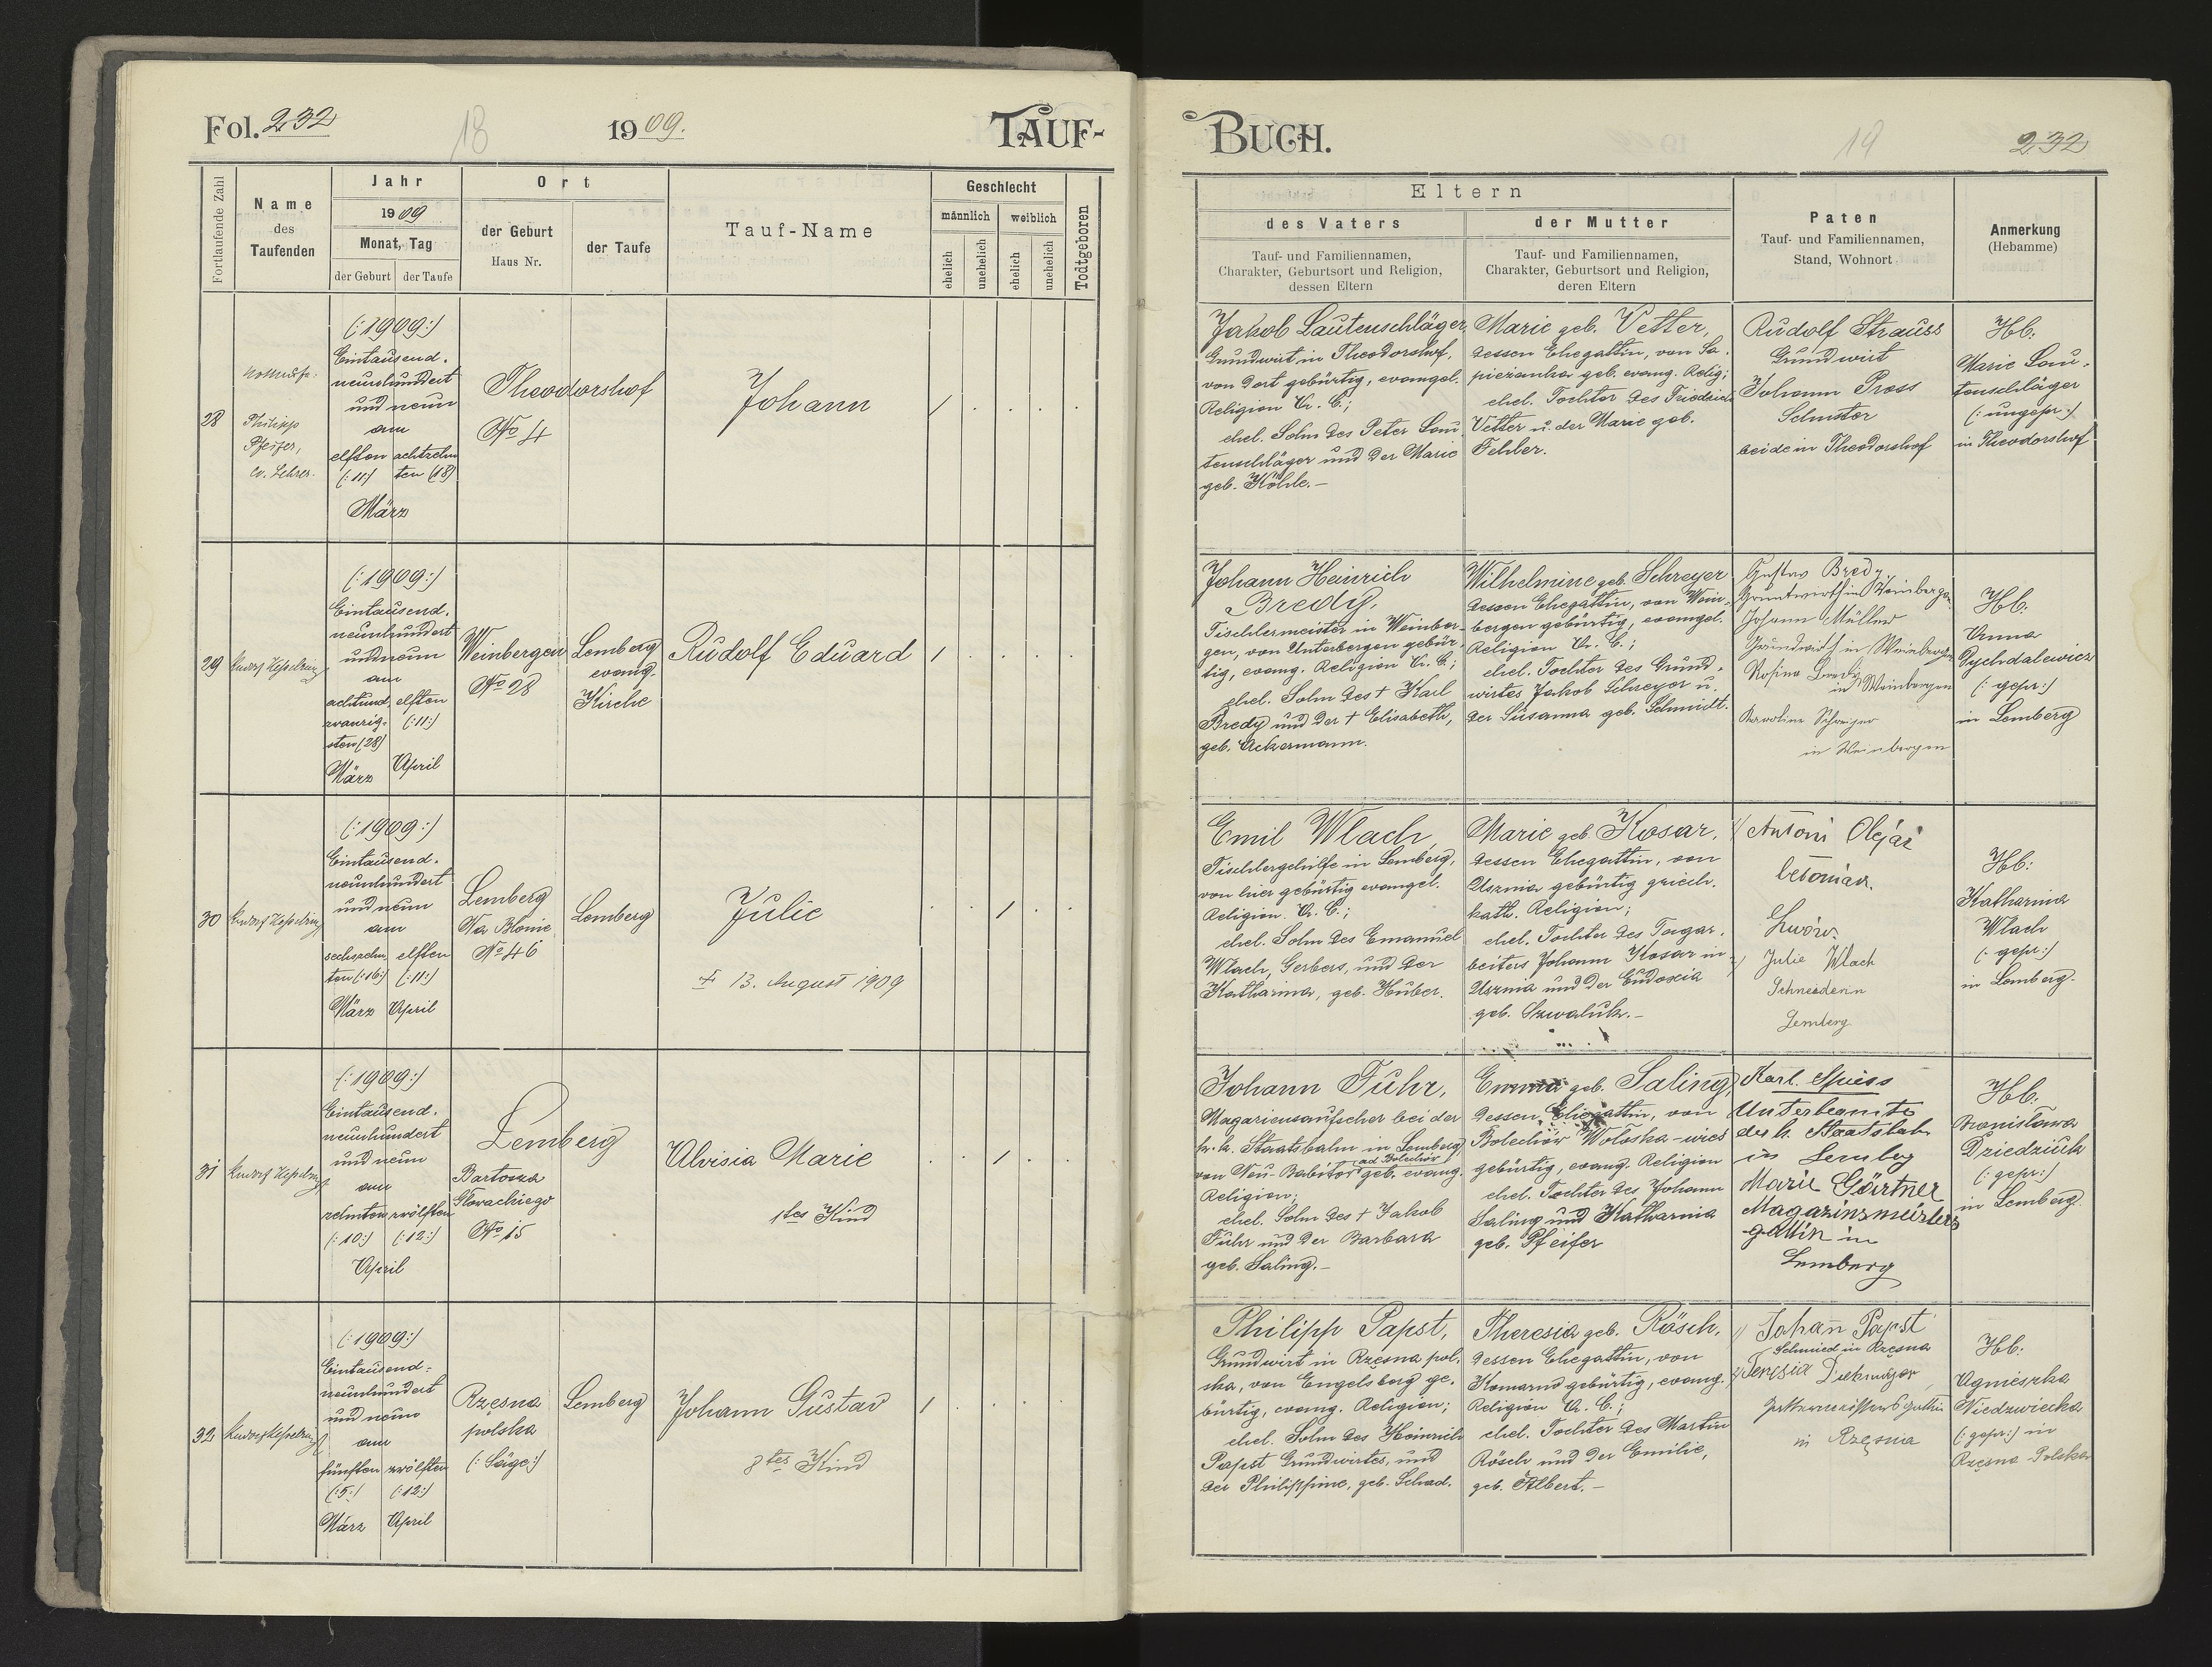 Fol. 232
18
1909.
TAUF-
Fortlaufende Zahl
Name
des
Taufenden
Jahr
1909
Monat, Tag
der Geburt
der Taufe
Ort
der Geburt
Haus Nr.
der Taufe
Tauf-Name
Geschlecht
männlich
weiblich
ehelich
unehelich
ehelich
unehelich
Todtgeboren
28
Philipp
Pfeifer,
ev. Lehrer.
(:1909:)
Eintausend-
neunhundert
und neun
am
elften
(:11:)
achtzehn
ten (18)
März
Theodorshof
No 4
Johann
29
(:1909:)
Eintausend-
neunhundert
und neun
am
achtund
zwanzig-
sten (28)
März
elften
(:11:)
April
Weinbergen
No 28
Lemberg
evang.
Kirche
Rudolf Eduard
30
(:1909:)
Eintausend-
neunhundert
und neun
am
sechszehn-
ten (:16:)
März
elften
(:11:)
April
Lemberg
Na Błonie
No 46
Lemberg
Julie
† 13. August 1909
31
(:1909:)
Eintausend-
neunhundert
und neun
am
zehnten
(:10:)
zwölften
(:12:)
April
Lemberg
Bartosza
Głowackiego
No 15
Aloisia Marie
1tes Kind
32
(:1909:)
Eintausend-
neunhundert
und neun
am
fünften
(:5:)
März
zwölften
(:12:)
April
Rzęsna
polska
(:Säge:)
Lemberg
Johann Gustav
8tes Kind
BUCH.
19
232
Eltern
des Vaters
Tauf- und Familiennamen,
Charakter, Geburtsort und Religion,
dessen Eltern
der Mutter
Tauf- und Familiennamen,
Charakter, Geburtsort und Religion,
deren Eltern
Paten
Tauf- und Familiennamen,
Stand, Wohnort
Anmerkung
(Hebamme)
Jakob Lautenschläger,
Grundwirt in Theodorshof,
von dort gebürtig, evangel.
Religion A. C.;
ehel. Sohn des Peter Lau-
tenschläger und der Marie
geb. Köhle.-
Marie geb. Vetter,
dessen Ehegattin, von Sa-
pieżanka geb. evang. Relig;
ehel. Tochter des Friedrich
Vetter u. der Marie geb.
Fehler.
Rudolf Strauss
Grundwirt
Johann Press
Schuster
beide in Theodorshof
Hb:
Marie Lau-
tenschläger
(:ungepr:)
in Theodorshof
Johann Heinrich
Bredy,
Tischlermeister in Weinber-
gen, von Unterbergen gebür-
tig, evang. Religion A. C.;
ehel. Sohn des † Karl
Bredy und der † Elisabeth,
geb. Ackermann.
Wilhelmine geb. Schreyer
dessen Ehegattin, von Wein-
bergen gebürtig, evangel.
Religion A. C.;
ehel. Tochter des Grund-
wirtes Jakob Schreyer u.
der Susanna geb. Schmidt.
Gustav Bredy
Grundwirth in Weinbergen
Johann Müller
Grundwirth in Weinbergen
Rosina Bredy
in Weinbergen
Karoline Schreyer
in Weinbergen
Hb:
Anna
Pychdalewicz
(:gepr:)
in Lemberg
Emil Wlach,
Tischlergehilfe in Lemberg,
von hier gebürtig evangel.
Religion. A. C.;
ehel. Sohn des Emanuel
Wlach, Gerbers, und der
Katharina, geb. Huber.
Marie geb. Kosar,
dessen Ehegattin, von
Usznia gebürtig griech.
kath. Religion;
ehel. Tochter des Tagar-
beiters Johann Kosar in
Usznia und der Eudoscia
geb. Szwaluk.-
Antoni Olejar
betoniarz
Lwów.
Julie Wlach
Schneiderin
Lemberg.
Hb:
Katharina
Wlach
(:gepr:)
in Lemberg.
Johann Fuhr,
Magazinsaufseher bei der
k. k. Staatsbahn in Lemberg,
ad Bolechów
von Neu-Babilon geb. evang.
Religion;
ehel. Sohn des † Jakob
Fuhr und der Barbara
geb. Saling.-
Emma geb. Saling,
dessen Ehegattin, von
Bolechów Wołoska-wieś
gebürtig, evang. Religion
ehel. Tochter des Johann
Saling und Katharina
geb. Pfeifer
Karl Spiess
Unterbeamte
der k. Staatsbahn
in Lemberg
Marie Gärtner
Magazinsmeisters
gattin in
Lemberg
Hb:
Bronisława
Dziedziuk
(:gepr:)
in Lemberg
Philipp Papst,
Grundwirt in Rzęsna pol-
ska, von Engelsberg ge-
bürtig, evang. Religion;
ehel. Sohn des Heinrich
Papst Grundwirtes, und
der Philippine, geb. Schad.
Theresia geb. Rösch,
dessen Ehegattin, von
Komarno gebürtig, evang.
Religion A. C.;
ehel. Tochter des Martin
Rösch und der Emilie,
geb. Albert.-
Johann Papst
Schmied in Rzęsna
Teresia
in Rzęsna
Hb:
Agnieszka
Niedzwiecka
(:gepr:) in
Rzęsna-Polska